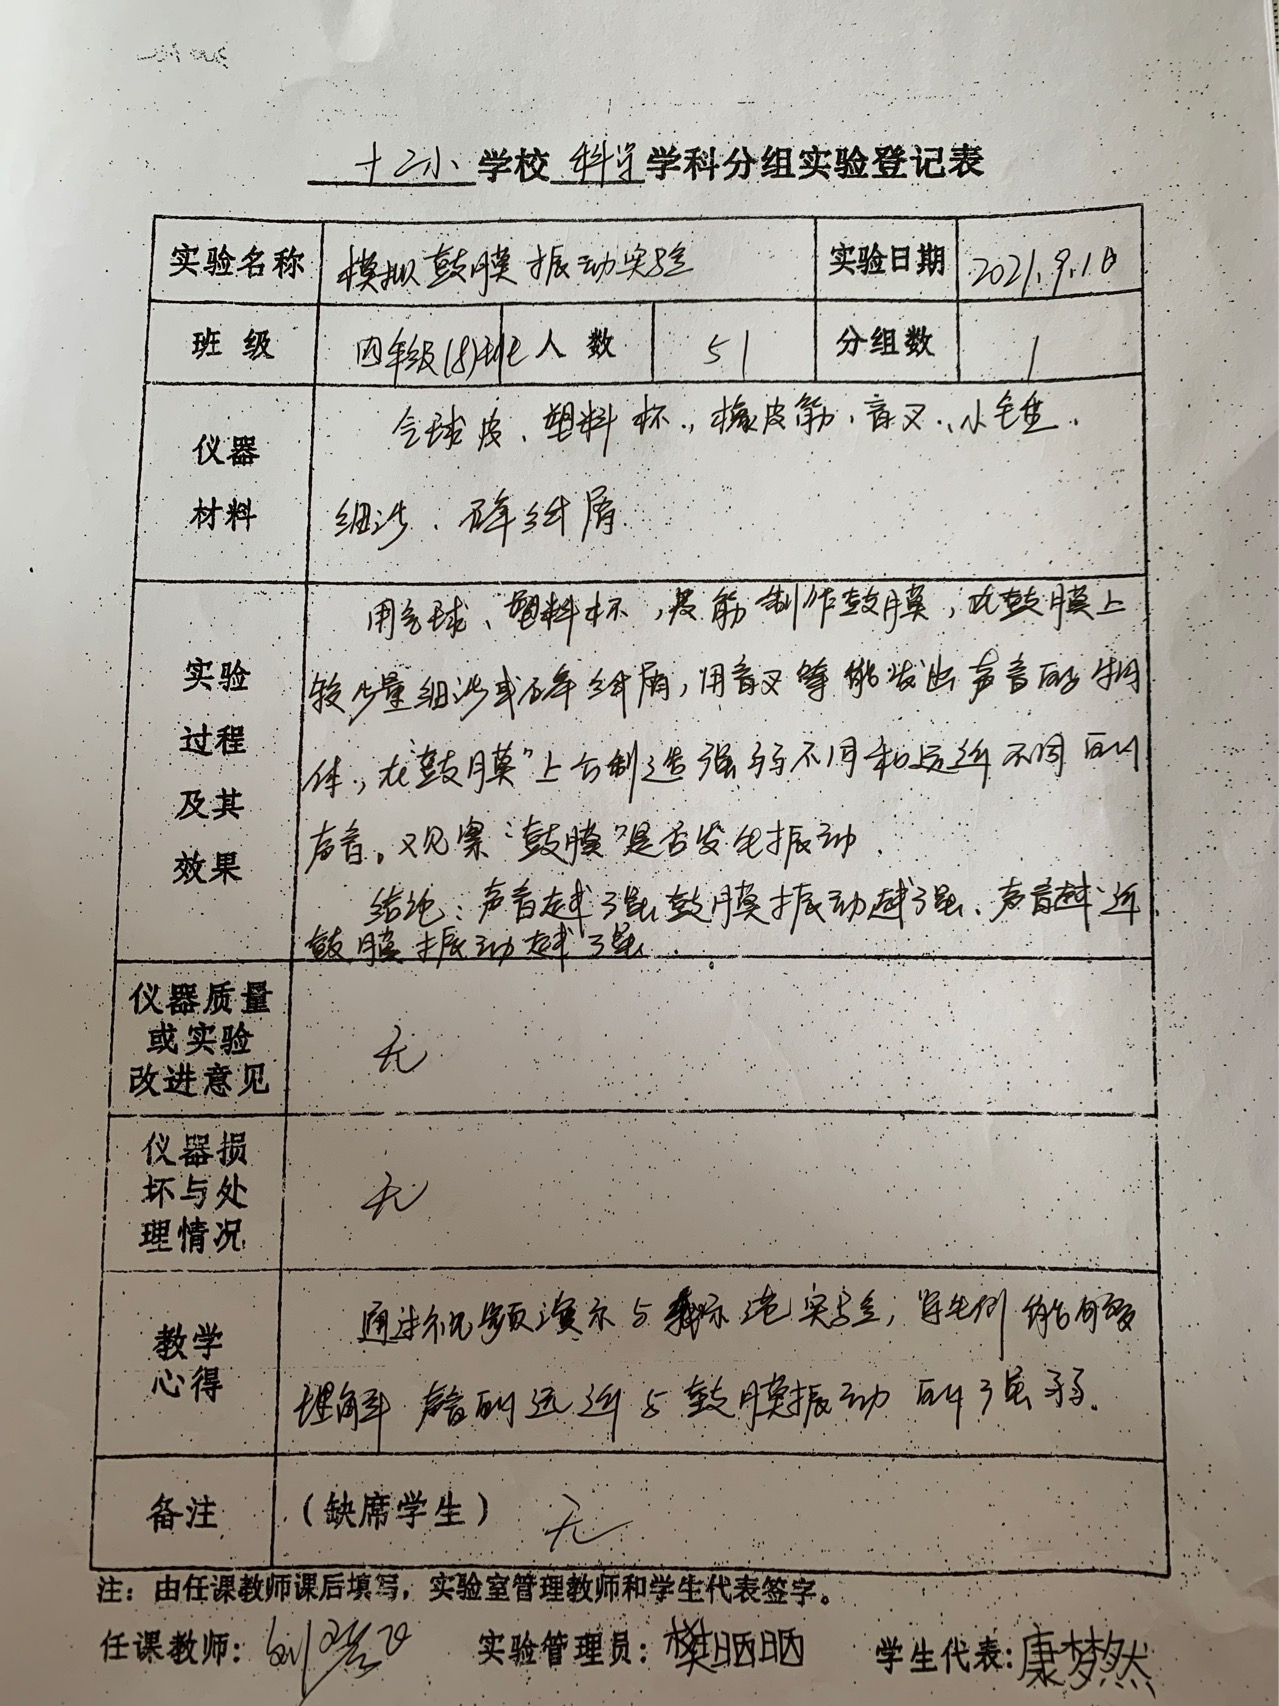 十二小学校 科学 学科分组实验登记表
实验名称 模拟鼓膜振动实验 实验日期 2021.9.16
班级 四年级(8)班 人数 51 分组数 1
仪器材料
气球皮、塑料杯、橡皮筋、音叉、小锤、
细沙、碎纸屑
实验过程及其效果
用气球、塑料杯,皮筋制作鼓膜,在鼓膜上
较少量细沙或碎纸屑,用音叉等能发出声音的物
体,在“鼓膜”上方制造强弱不同和远近不同的
声音。观察“鼓膜”是否发生振动.
结论:声音越强鼓膜振动越强、声音越近
鼓膜振动越强.
仪器质量
或实验
改进意见
无
仪器损
坏与处
理情况
无
教学
心得
通过视频演示与 实验,学生们能够
理解声音的远近与鼓膜振动的强弱.
备注 (缺席学生) 无
注:由任课教师课后填写,实验室管理教师和学生代表签字。
任课教师: 实验管理员:樊晒晒 学生代表:康梦然